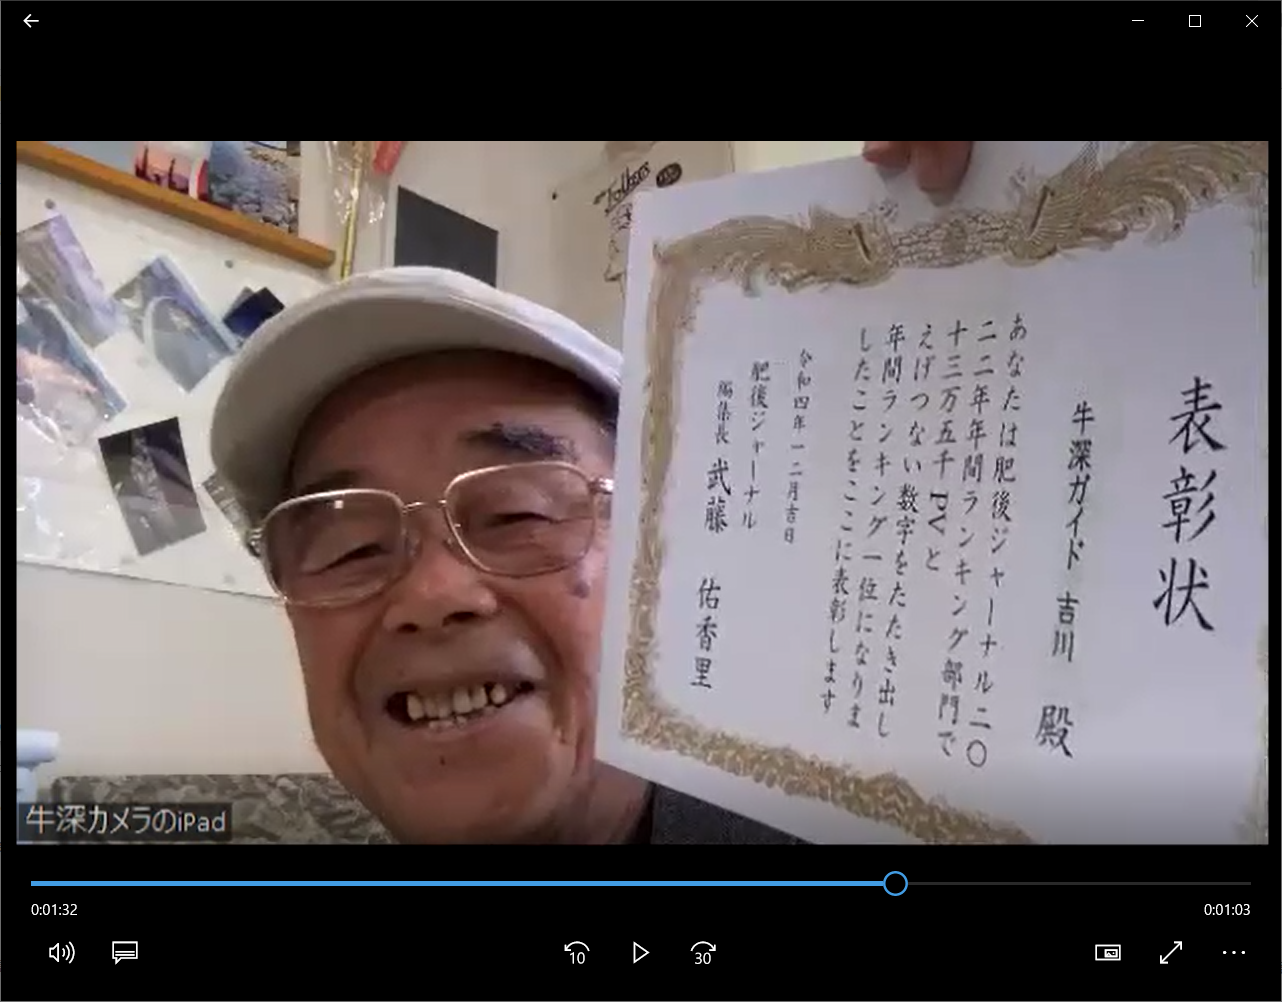 Talkers
表彰状
牛深ガイド 吉川 殿
あなたは肥後ジャーナル二〇
二二年年間ランキング部門で
十三万五千PVと
えげつない数字をたたき出し
年間ランキング一位になりま
したことをここに表彰します
令和四年一二月吉日
肥後ジャーナル
編集長 武藤 佑香里
牛深カメラのiPad
0:01:32
0:01:03
10
30